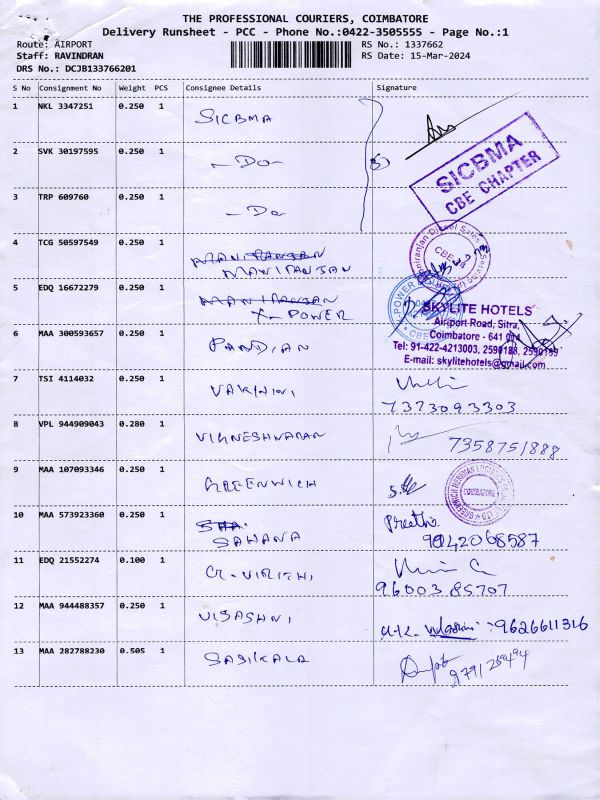 THE PROFESSIONAL COURIERS, COIMBATORE
Delivery Runsheet - PCC - Phone No.:0422-3505555 - Page No.:1
Route: AIRPORT RS No.: 1337662
Staff: RAVINDRAN RS Date: 15-Mar-2024
DRS No.: DCJB133766201
S No Consignment No Weight PCS Consignee Details Signature
1 NKL 3347251 0.250 1 SICBMA
SICBMA
CBE CHAPTER
2 SVK 30197595 0.250 1 - Do -
3 TRP 609760 0.250 1 - Do
4 TCG 50597549 0.250 1 MANIRANJAN
MANIRANJAN
Niranjan Diesel Sales & Service
CBE
5 EDQ 16672279 0.250 1 MANIRANJAN
X-POWER
POWER
SKYLITE HOTELS
Airport Road, Sitra,
Coimbatore - 641 014
Tel: 91-422-4213003, 2590188, 2590199
E-mail: skylitehotels@gmail.com
6 MAA 300593657 0.250 1 PANDIAN
7 TSI 4114032 0.250 1 VARHINI
7373093303
8 VPL 944909043 0.280 1 VIGNESHWARAN 7358751888
9 MAA 107093346 0.250 1 GREENWICH
GREENWICH MERIDIAN LOGISTICS
COIMBATORE
10 MAA 573923360 0.250 1 SAHANA Preethi
9042068587
11 EDQ 21552274 0.100 1 G.VIRITHI
96003 85707
12 MAA 944488357 0.250 1 VISASHNI 9626611316
13 MAA 282788230 0.505 1 SASIKALA